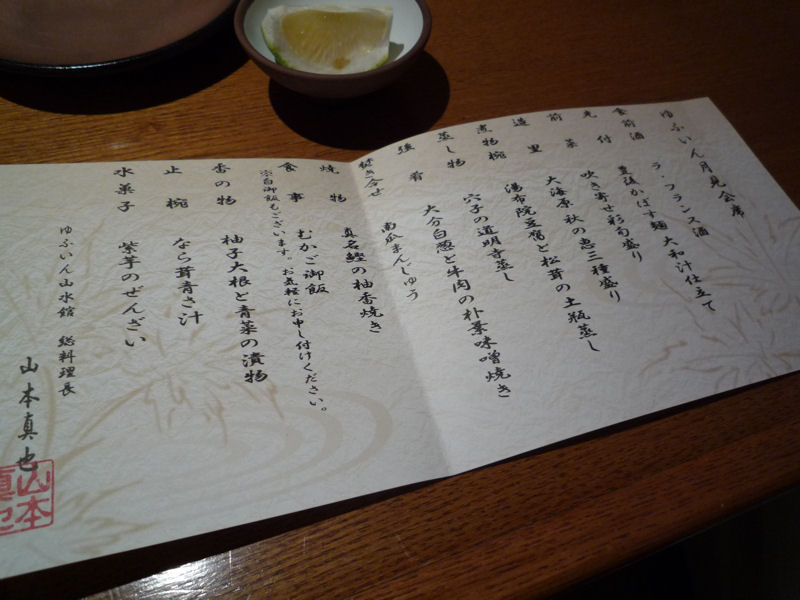 ゆふいん月見会席
食前酒 ラ・フランス酒
先付 豊後かぼす麺 大和汁仕立て
前菜 吹き寄せ彩旬盛り
造里 大海原 秋の恵三種盛り
煮物椀 湯布院豆腐と松茸の土瓶蒸し
蒸し物 穴子の道明寺蒸し
強肴 大分白葱と牛肉の朴葉味噌焼き
炊き合せ 南瓜まんじゅう
焼物 真名鰹の柚香焼き
食事 むかご御飯
※白御飯もございます。お気軽にお申し付けください。
香の物 柚子大根と青菜の漬物
止椀 なら茸青さ汁
水菓子 紫芋のぜんざい
ゆふいん山水館 総料理長
山本真也
山本
真也